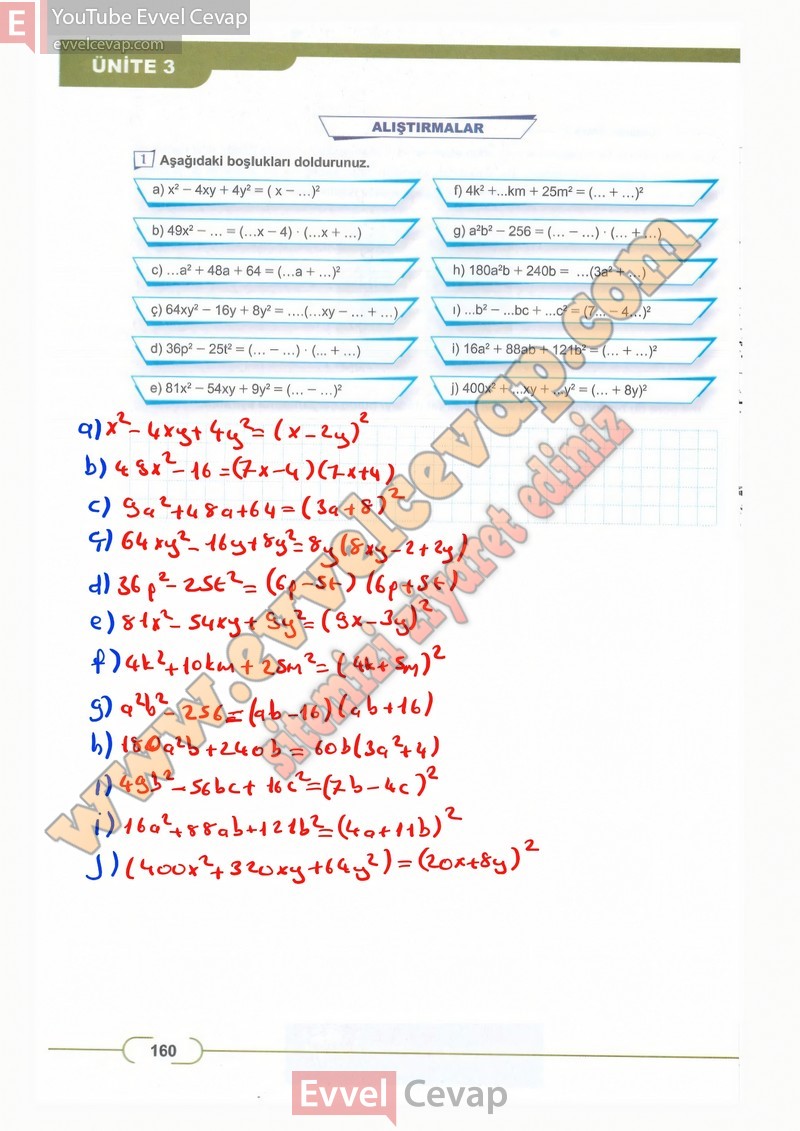 E YouTube Evvel Cevap
evvelcevap.com
ÜNİTE 3
ALIŞTIRMALAR
1 Aşağıdaki boşlukları doldurunuz.
a) x² – 4xy + 4y² = ( x – ...)²
b) 49x² – ... = (...x – 4) · (...x + ...)
c) ...a² + 48a + 64 = (...a + ...)²
ç) 64xy² – 16y + 8y² = ....(...xy – ... + ...)
d) 36p² – 25t² = (... – ...) · (... + ...)
e) 81x² – 54xy + 9y² = (... – ...)²
f) 4k² +...km + 25m² = (... + ...)²
g) a²b² – 256 = (... – ...) · (... + ...)
h) 180a²b + 240b = ...(3a² + ...)
ı) ...b² – ...bc + ...c² = (7... – 4...)²
i) 16a² + 88ab + 121b² = (... + ...)²
j) 400x² + ...xy + ...y² = (... + 8y)²
a) x² - 4xy + 4y² = (x - 2y)²
b) 49x² - 16 = (7x - 4) (7x + 4)
c) 9a² + 48a + 64 = (3a + 8)²
ç) 64xy² - 16y + 8y² = 8y (8xy - 2 + 2y)
d) 36p² - 25t² = (6p - 5t) (6p + 5t)
e) 81x² - 54xy + 9y² = (9x - 3y)²
f) 4k² + 10km + 25m² = (4k + 5m)²
g) a²b² - 256 = (ab - 16) (ab + 16)
h) 180a²b + 240b = 60b (3a² + 4)
ı) 49b² - 56bc + 16c² = (7b - 4c)²
i) 16a² + 88ab + 121b² = (4a + 11b)²
j) (400x² + 320xy + 64y²) = (20x + 8y)²
www.evvelcevap.com
sitemizi ziyaret ediniz
160
Evvel Cevap